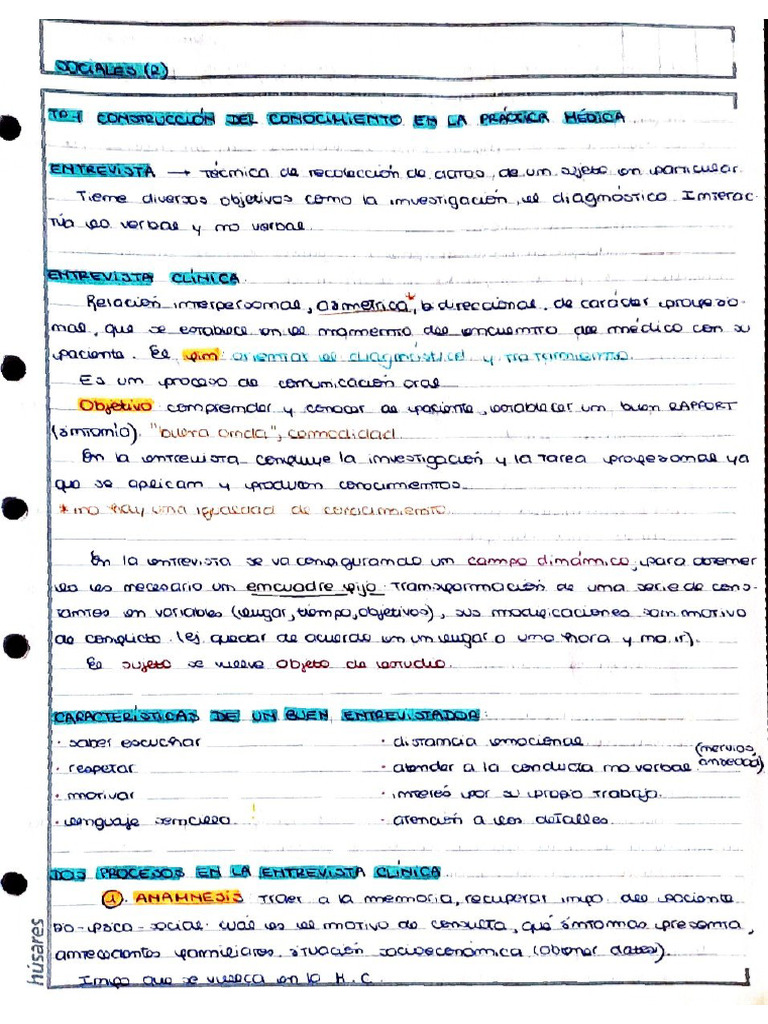 SOCIALES (R)
TP.1 CONSTRUCCIÓN DEL CONOCIMIENTO EN LA PRÁCTICA MÉDICA
ENTREVISTA → Técnica de recolección de datos, de un sujeto en particular.
Tiene diversos objetivos como la investigación, el diagnóstico. Interac-
túa lo verbal y no verbal.
ENTREVISTA CLÍNICA
Relación interpersonal, asimetrica*, bidireccional, de carácter profesio-
nal, que se establece en el momento del encuentro del médico con su
paciente. El fin: orientar el diagnóstico y tratamiento.
Es un proceso de comunicación oral
Objetivo comprender y conocer al paciente, establecer un buen RAPPORT
(sintonía). "buena onda", comodidad.
En la entrevista confluye la investigación y la tarea profesional ya
que se aplican y producen conocimientos.
* no hay una igualdad de conocimiento
En la entrevista se va configurando un campo dinámico, para obtener
lo es necesario un encuadre fijo. Transformación de una serie de cons-
tantes en variables (lugar, tiempo, objetivos), sus modificaciones son motivo
de conflicto. (ej. quedar de acuerdo en un lugar a una hora y no ir).
El sujeto se vuelve objeto de estudio.
CARACTERÍSTICAS DE UN BUEN ENTREVISTADOR:
· saber escuchar
· distancia emocional
· respetar
· atender a la conducta no verbal (nervios, ansiedad)
· motivar
· interés por su propio trabajo.
· lenguaje sencillo
· atención a los detalles.
DOS PROCESOS EN LA ENTREVISTA CLÍNICA
1. ANAMNESIS Traer a la memoria, recuperar info del paciente
-psico-social. cuál es el motivo de consulta, qué síntomas presenta,
antecedentes familiares, situación socioeconómica (obtener datos).
Info que se vuelca en la H.C.
húsares